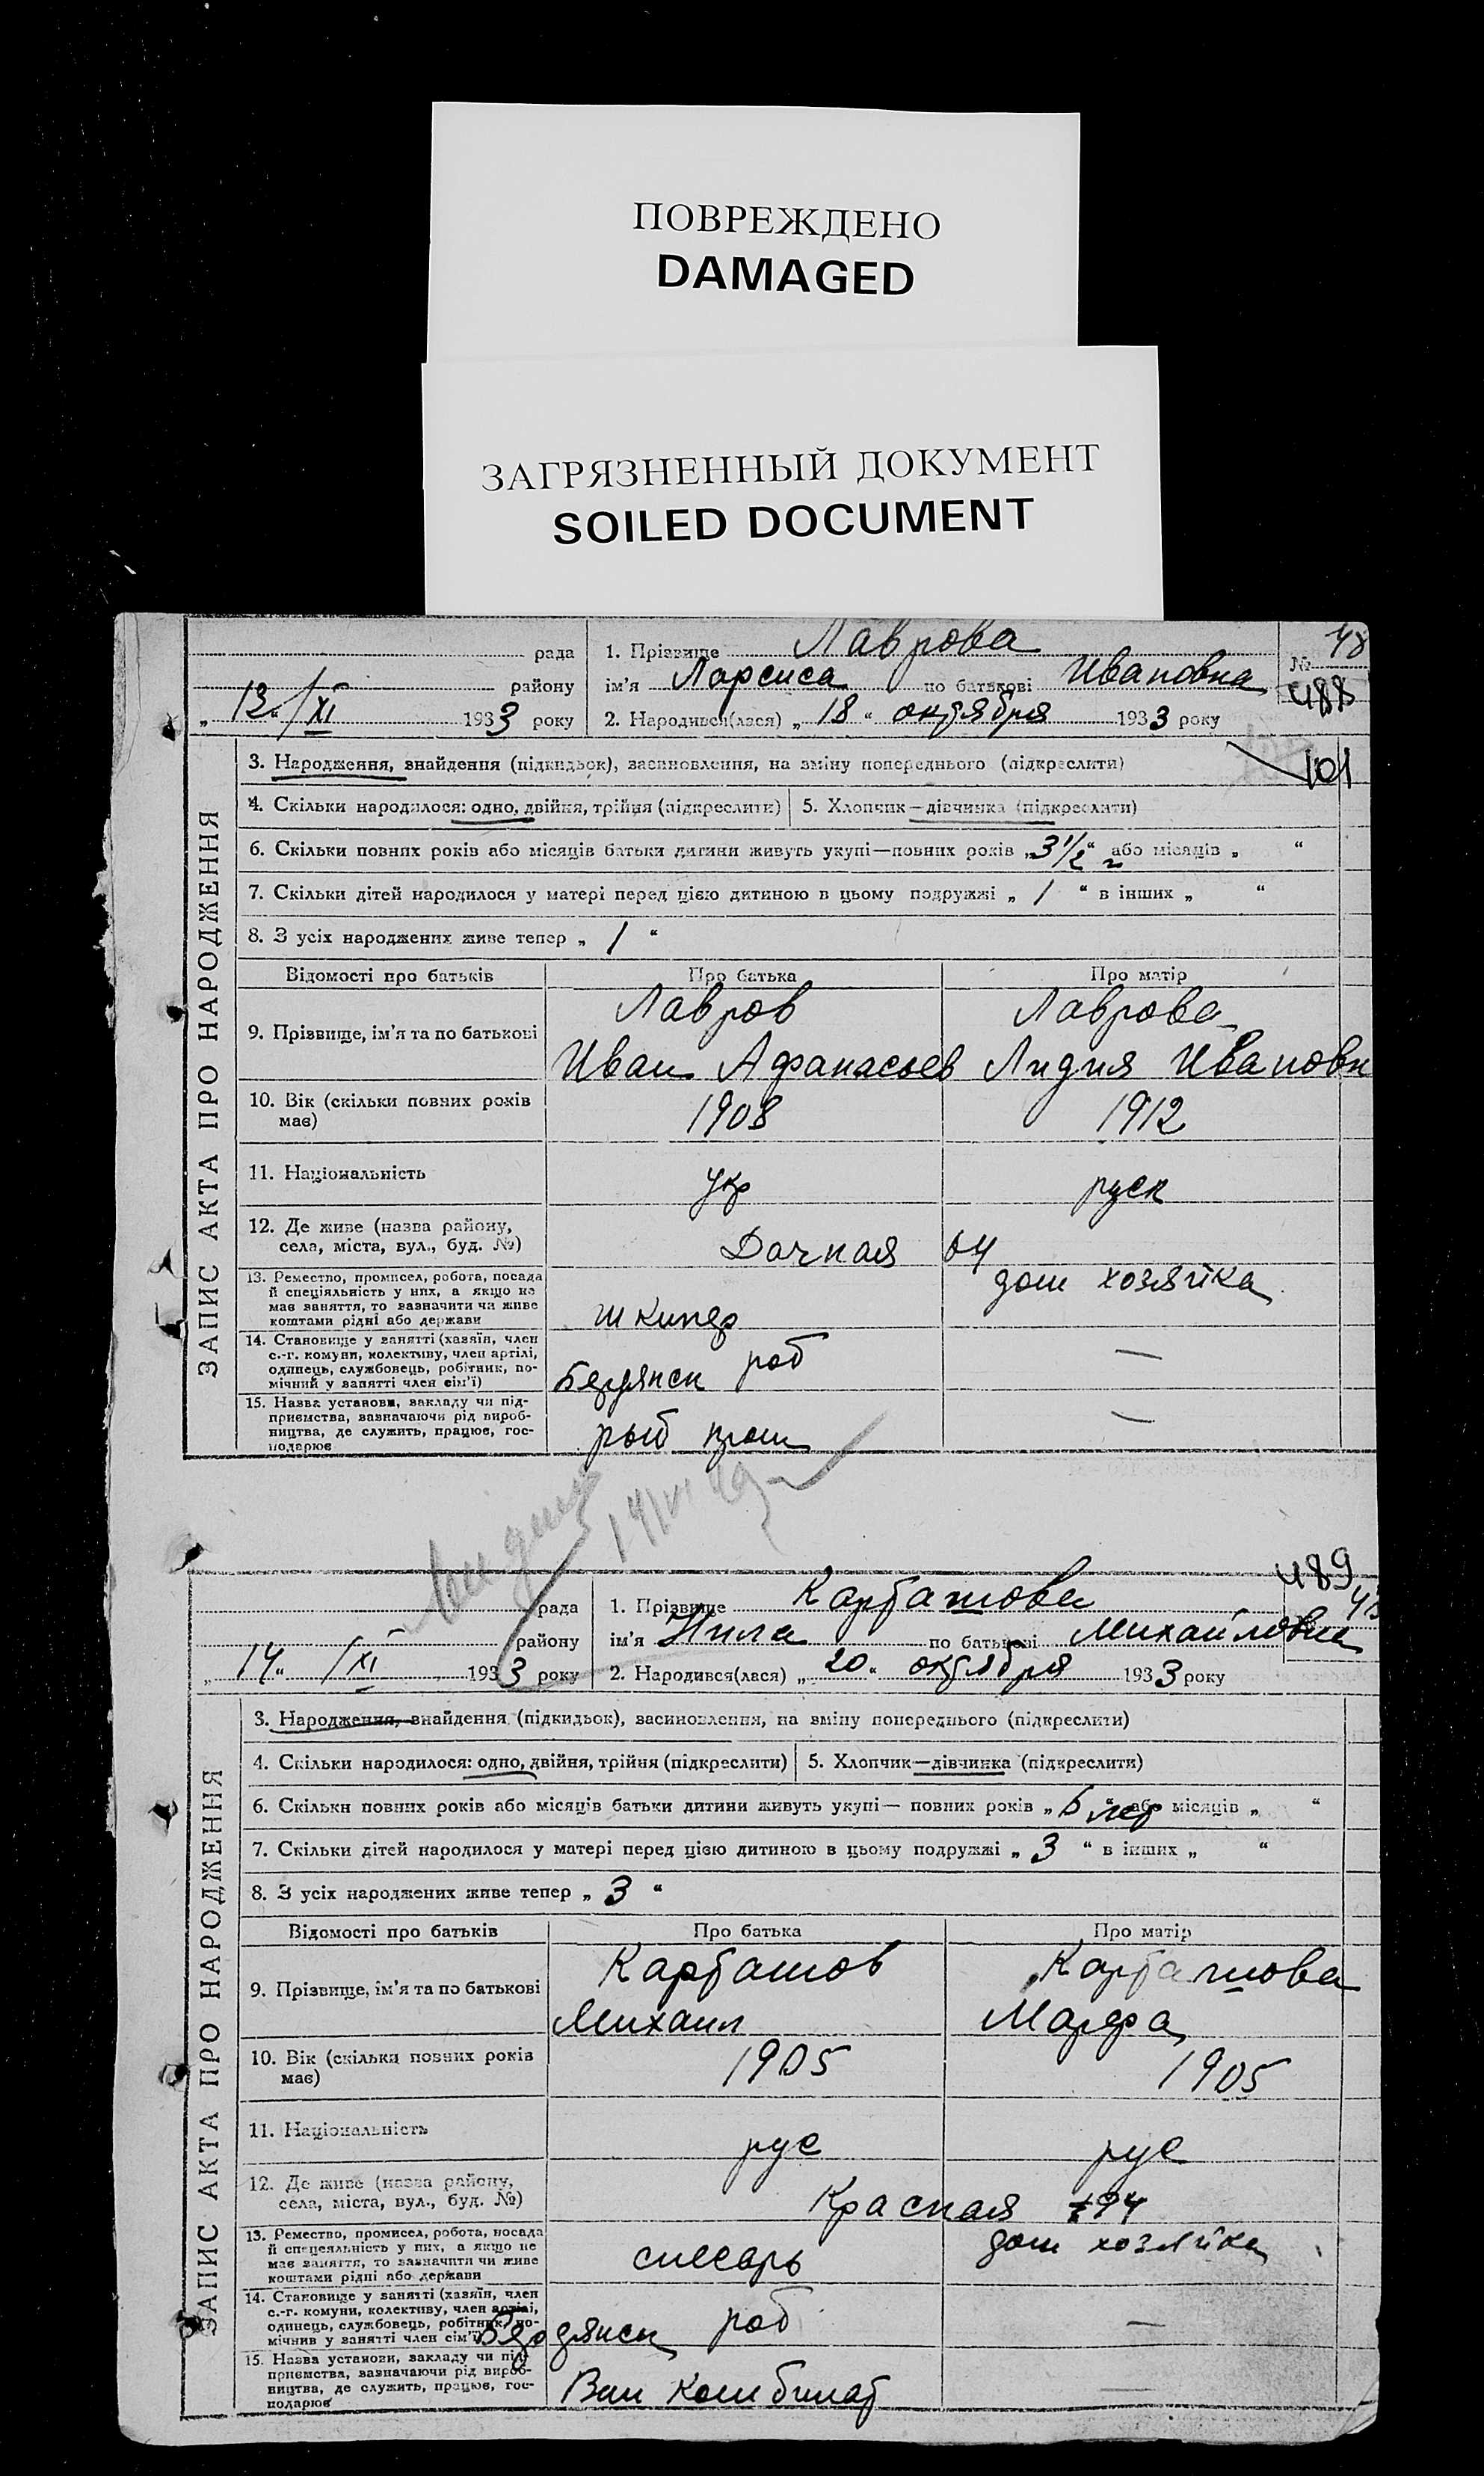 ПОВРЕЖДЕНО
DAMAGED
ЗАГРЯЗНЕННЫЙ ДОКУМЕНТ
SOILED DOCUMENT
рада
1. Прізвище Лаврова
№ 48
району
ім'я Лариса по батькові Ивановна
488
„13“/XI 1933 року
2. Народився(лася) „18“ октября 1933 року
101
ЗАПИС АКТА ПРО НАРОДЖЕННЯ
3. Народження, знайдення (підкидьок), засиновлення, на зміну попереднього (підкреслити)
4. Скільки народилося: одно, двійня, трійня (підкреслити)
5. Хлопчик—дівчинка (підкреслити)
6. Скільки повних років або місяців батьки дитини живуть укупі—повних років „3 1/2“ або місяців „ “
7. Скільки дітей народилося у матері перед цією дитиною в цьому подружжі „ 1 “ в інших „ “
8. З усіх народжених живе тепер „ 1 “
Відомості про батьків
Про батька
Про матір
9. Прізвище, ім'я та по батькові
Лавров
Иван Афанасьев
Лаврова
Лидия Ивановн
10. Вік (скільки повних років
має)
1908
1912
11. Національність
укр
руск
12. Де живе (назва району,
села, міста, вул., буд. №)
Дачная 64
13. Ремество, промисел, робота, посада
й спеціяльність у них, а якщо не
має заняття, то зазначити чи живе
коштами рідні або держави
шкипер
дом хозяйка
14. Становище у занятті (хазяїн, член
с.-г. комуни, колективу, член артілі,
одинець, службовець, робітник, по-
мічний у занятті член сім'ї)
роб
—
15. Назва установи, закладу чи під-
приємства, зазначаючи рід вироб-
ництва, де служить, працює, гос-
подарює
Бердянск
рыб пром
—
489
рада
1. Прізвище Карташова
району
ім'я Нила по батькові Михайловна
„14“ /XI 1933 року
2. Народився(лася) „20“ октября 1933 року
ЗАПИС АКТА ПРО НАРОДЖЕННЯ
3. Народження, знайдення (підкидьок), засиновлення, на зміну попереднього (підкреслити)
4. Скільки народилося: одно, двійня, трійня (підкреслити)
5. Хлопчик—дівчинка (підкреслити)
6. Скільки повних років або місяців батьки дитини живуть укупі— повних років „ або місяців „ “
7. Скільки дітей народилося у матері перед цією дитиною в цьому подружжі „ 3 “ в інших „ “
8. З усіх народжених живе тепер „ 3 “
Відомості про батьків
Про батька
Про матір
9. Прізвище, ім'я та по батькові
Карташов
Михаил
Карташова
Марфа
10. Вік (скільки повних років
має)
1905
1905
11. Національність
рус
рус
12. Де живе (назва району,
села, міста, вул., буд. №)
Красная 94
13. Ремество, промисел, робота, посада
й спецеяльність у них, а якщо не
має заняття, то зазначити чи живе
коштами рідні або держави
слесарь
дом хозяйка
14. Становище у занятті (хазяїн, член
с.-г. комуни, колективу, член артілі,
одинець, службовець, робітник, по-
мічнив у занятті член сім'ї)
роб
—
15. Назва установи, закладу чи під-
приємства, зазначаючи рід вироб-
ництва, де служить, працює, гос-
подарює
Бердянск
Вин комбинат
—